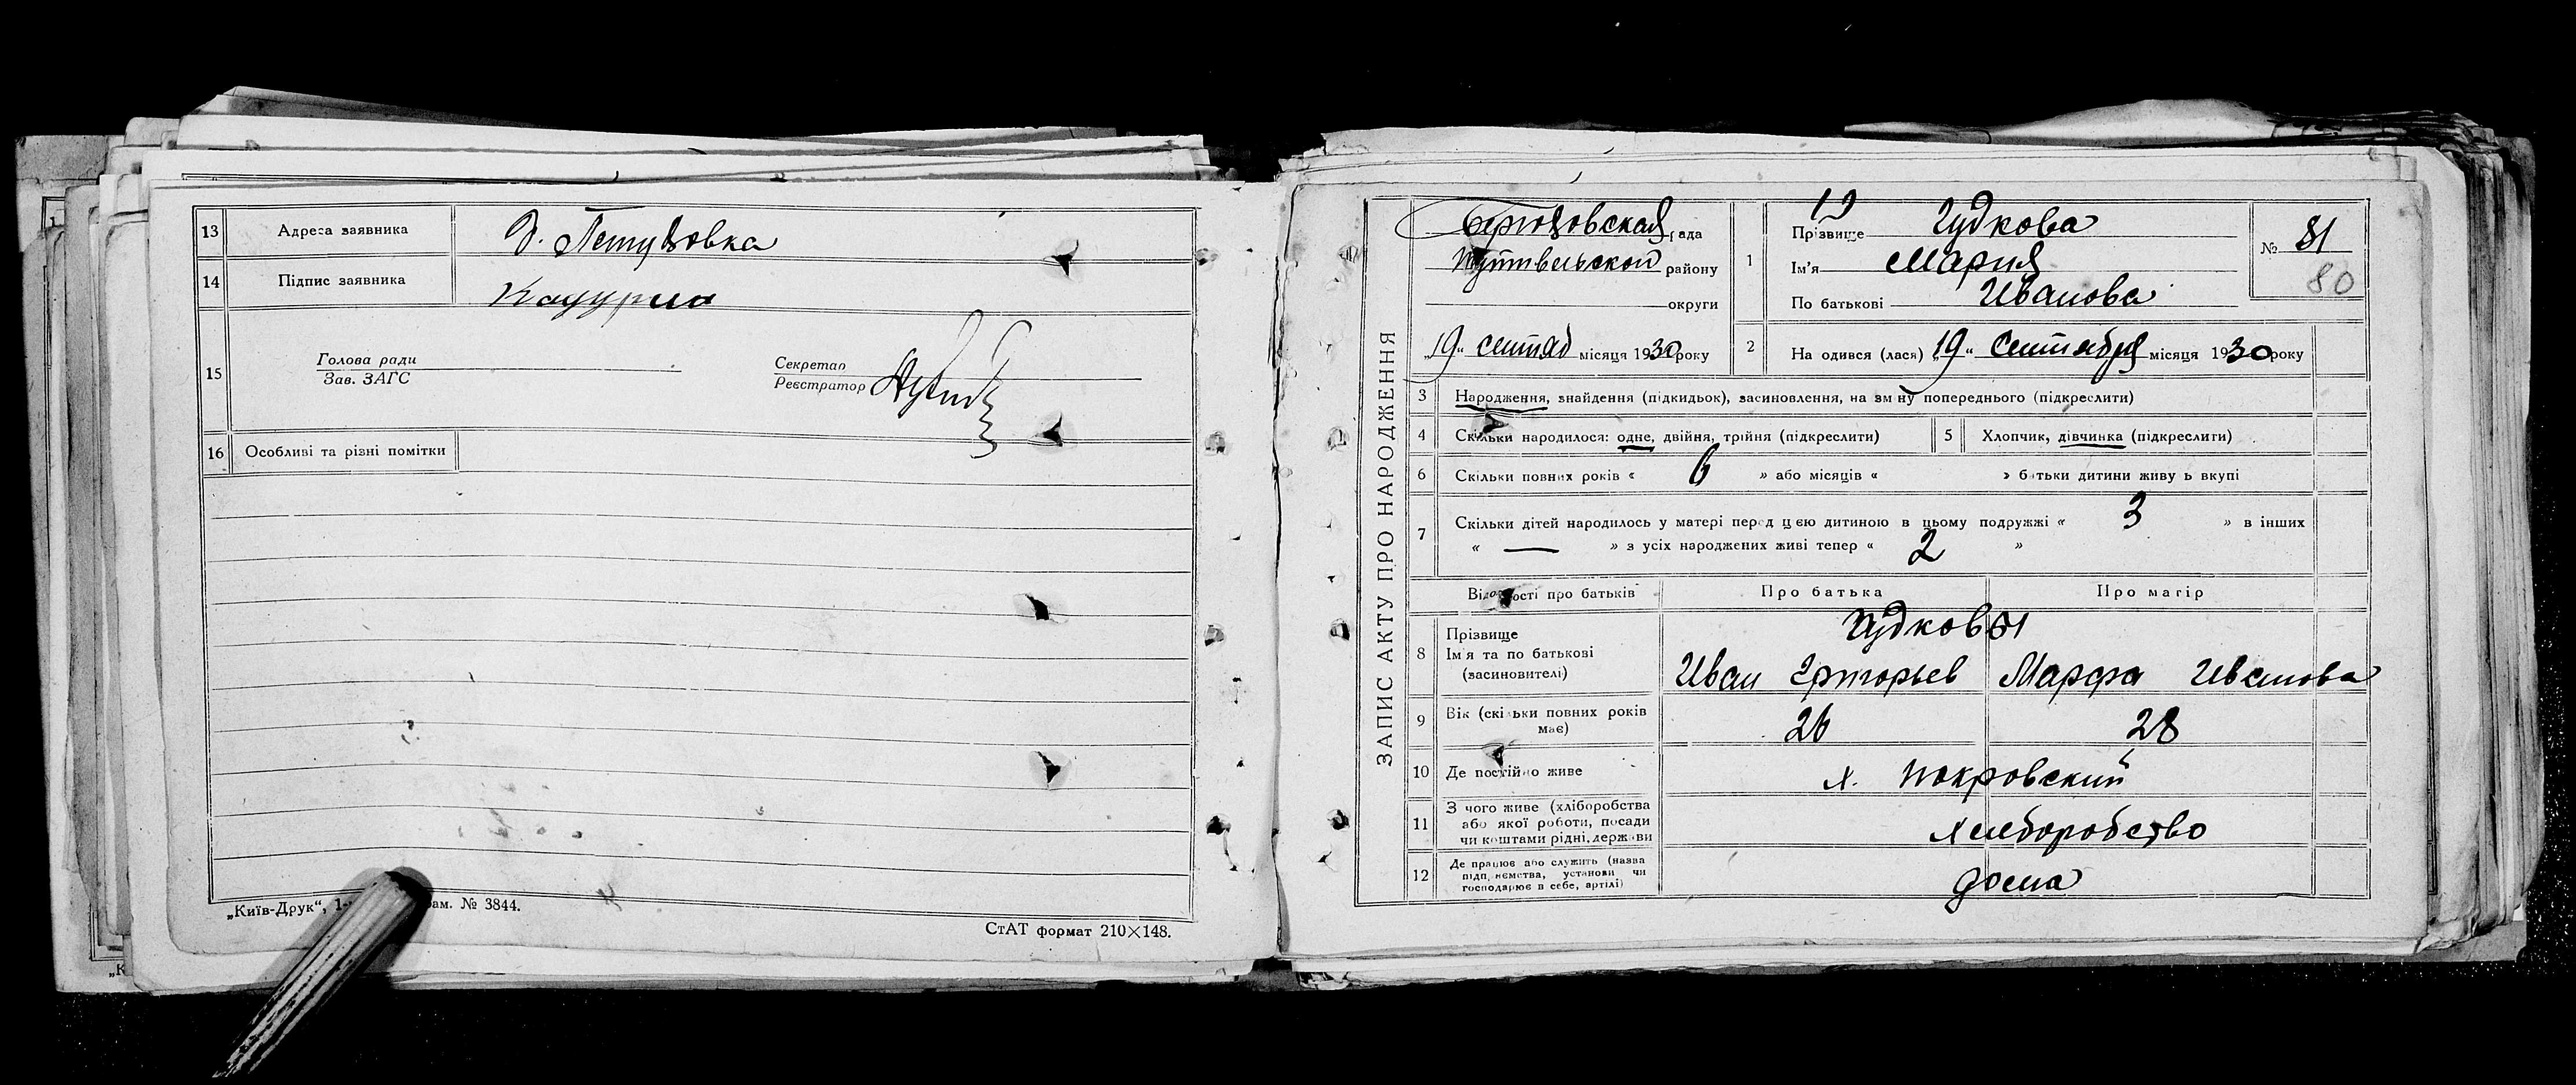 13 Адреса заявника д. Петуховка
14 Підпис заявника
15 Голова ради
Зав. ЗАГС
Секретар
Реєстратор
16 Особливі та різні помітки
„Київ-Друк“, 1- зам. № 3844.
СтАТ формат 210×148.
ЗАПИС АКТУ ПРО НАРОДЖЕННЯ
рада
Путивльской району
округи
„19“ сентяб місяця 1930 року
19
1 Прізвище Гудкова
Ім'я Мария
По батькові Иванова
№ 81
80
2 Народився (лася) „19“ Сентября місяця 1930 року
3 Народження, знайдення (підкидьок), засиновлення, на зміну попереднього (підкреслити)
4 Скільки народилося: одне, двійня, трійня (підкреслити)
5 Хлопчик, дівчинка (підкреслити)
6 Скільки повних років « 6 » або місяців « » батьки дитини живуть вкупі
7 Скільки дітей народилось у матері перед цією дитиною в цьому подружжі « 3 » в інших
« — » з усіх народжених живі тепер « 2 »
Відомості про батьків Про батька Про матір
8 Прізвище Гудковы
Ім'я та по батькові
(засиновителі) Иван Григорьев Марфа Иванова
9 Вік (скільки повних років має) 26 28
10 Де постійно живе х. Покровский
11 З чого живе (хліборобства
або якої роботи, посади
чи коштами рідні, держави Хлеборобство
12 Де працює або служить (назва
підприємства, установи чи
господарює в себе, артілі) дома